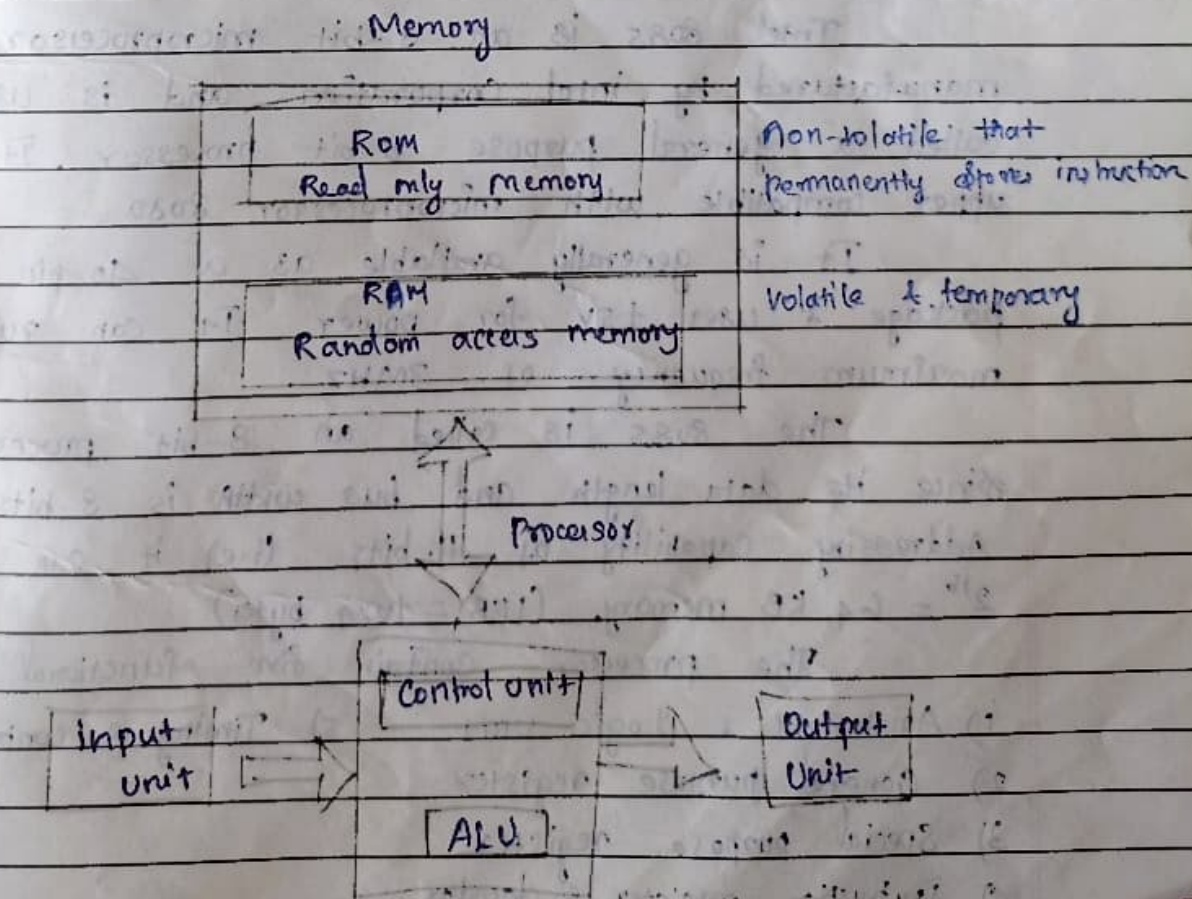 Memory
ROM
Read only memory
Non-volatile that
permanently stores instruction
RAM
Random access memory
Volatile & temporary
Processor
Control unit
input
unit
Output
Unit
ALU